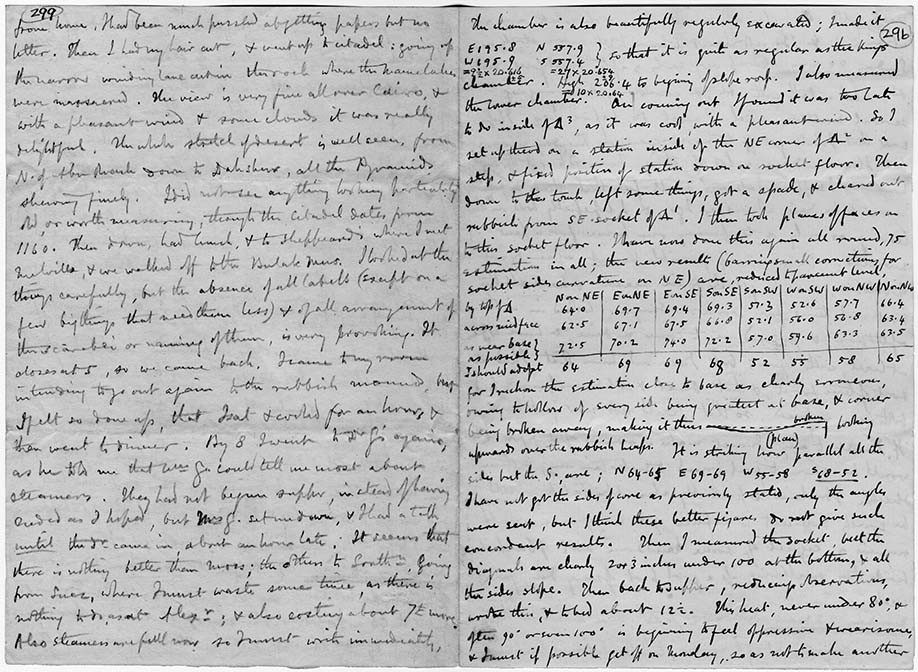 299
from home. Had been much puzzled abt getting papers but no
letter. Then I had my hair cut, & went up to citadel: going up
the narrow winding lane cut in the rock where the Mamelukes
were massacred. The view is very fine all over Cairo, &
with a pleasant wind & some clouds it was really
delightful. The whole stretch of desert is well seen, from
N. of Abu Roash down to Dahshur, all the Pyramids
shewing finely. I did not see anything looking particularly
old or worth measuring, though the Citadel dates from
1160. Then down, had lunch, & to Sheppeard's where I met
Melville, & we walked off to the Bulak Mus. I looked at the
things carefully, but the absence of all labels (except on a
few big things that need them less) & of all arrangement of
the scarabei or naming of them, is very provoking. It
closes at 5, so we came back. I came to my room
intending to go out again to the rubbish mounds, but
I felt so done up, that I sat & cooked for an hour, &
then went to dinner. By 8 I went to Dr G's again,
as he told me that Mrs G. could tell me most about
steamers. They had not begun supper, instead of having
ended as I hoped, but Mrs G. set me down, & I had a talk
until the Dr came in, about an hour late. It seems that
there is nothing better than Moss; the others to Southn. going
from Suez, where I must waste some time, as there is
nothing to do, as at Alexr; & also costing about 7£ more.
Also steamers are full now so I must write immediately,
296
The chamber is also beautifully regularly excavated; I made it
E 195.8 N 557.9 } so that it is quite as regular as the Kings
W 195.9 S 557.4
= 9½ x 20.616 = 27 x 20.654
chamber. High 206.4 to begining of slope roof. I also measured
= 10 x 20.64
the lower chamber. On coming out I found it was too late
to do inside of Δ3, as it was cool with a pleasant wind. So I
set up theod on a station inside of the NE corner of Δ2 on a
step, & fixed position of station down on socket floor. Then
down to the tomb, left some things, got a spade, & cleared out
rubbish from SE socket of Δ1. I then took planes of faces on
to this socket floor. I have now done this again all round, 75
estimation in all; the new results (barring small corrections for
socket sides curvature, on NE) are, reduced to pavement level,
N on NE | E on NE | E on SE | S on SE | S on SW | W on SW | W on NW | N on NW
by top of Δ 64.0 69.7 69.4 69.3 57.3 52.6 57.7 66.4
across mid face 62.5 67.1 67.5 66.8 52.1 56.0 56.8 63.4
as near base as possible } 72.5 70.2 74.0 72.2 57.0 59.6 63.3 63.5
I should adopt 64 69 69 68 52 55 58 65
for I reckon the estimation close to base as clearly erroneous,
owing to hollow of every side being greatest at base, & corner
being broken away, making it thus broken (plan) } looking
upwards over the rubbish heaps. It is striking how parallel all the
sides but the S. are; N 64-65 E 69-69 W 55-58 S 68-52.
I have not got the sides of core as previously stated, only the angles
were sent, but I think these better figures do not give such
concordant results. Then I measured the socket, but the
diagonals are clearly 2 or 3 inches under 100 at the bottom, & all
the sides slope. Then back to supper, reducing observations,
wrote this, & to bed about 12½. This heat, never under 80°, &
often 90° or even 100° is beginning to feel oppressive & wearisome,
& I must if possible get off on Monday, so as not to make another